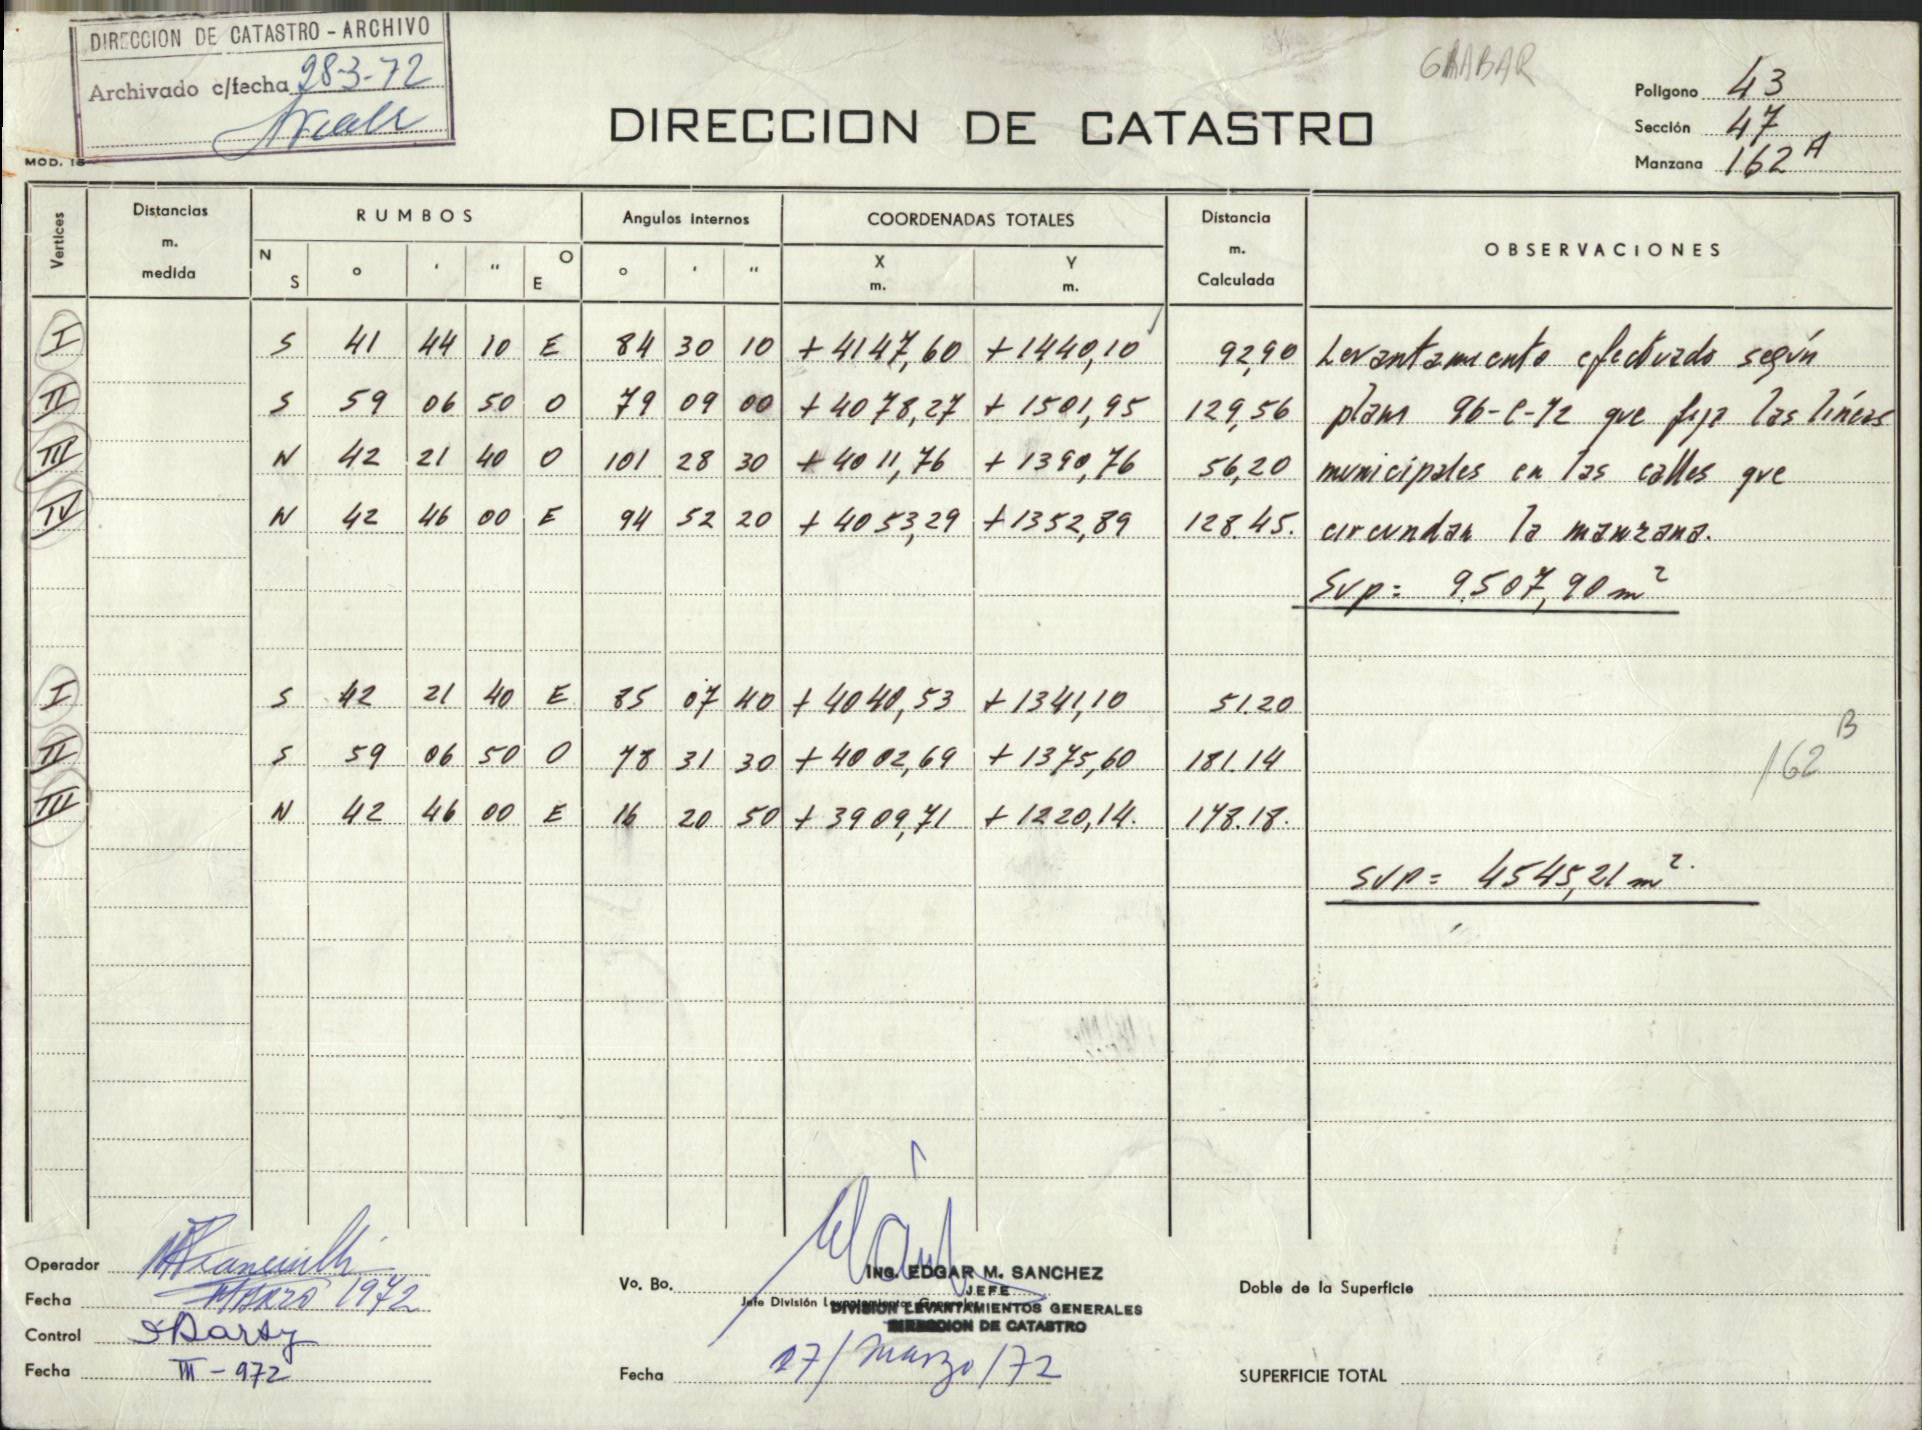 DIRECCION DE CATASTRO - ARCHIVO
Archivado c/fecha 28-3-72
MOD. 15
DIRECCION DE CATASTRO
GRABAR
Poligono 43
Sección 47
Manzana 162 A
Vertices
Distancias m. medida
RUMBOS
Angulos internos
COORDENADAS TOTALES
Distancia m. Calculada
OBSERVACIONES
N S ° ' " O E ° ' " X m. Y m.
I S 41 44 10 E 84 30 10 +4147,60 +1440,10 92,90 Levantamiento efectuado según
II S 59 06 50 O 79 09 00 +4078,27 +1501,95 129,56 plano 96-C-72 que fija las líneas
III N 42 21 40 O 101 28 30 +4011,76 +1390,76 56,20 municipales en las calles que
IV N 42 46 00 E 94 52 20 +4053,29 +1352,89 128.45. circundan la manzana.
Sup= 9.507,90 m²
I S 42 21 40 E 85 07 40 +4040,53 +1341,10 51.20
II S 59 06 50 O 78 31 30 +4002,69 +1375,60 181.14 162 B
III N 42 46 00 E 16 20 50 +3909,71 +1220,14. 178.18.
SUP= 4545,21 m².
Operador
Fecha Marzo 1972
Control
Fecha III-972
Vo. Bo.
ING. EDGAR M. SANCHEZ
JEFE
Jefe División
DIVISION LEVANTAMIENTOS GENERALES
DIRECCION DE CATASTRO
Fecha 27/Marzo/72
Doble de la Superficie
SUPERFICIE TOTAL